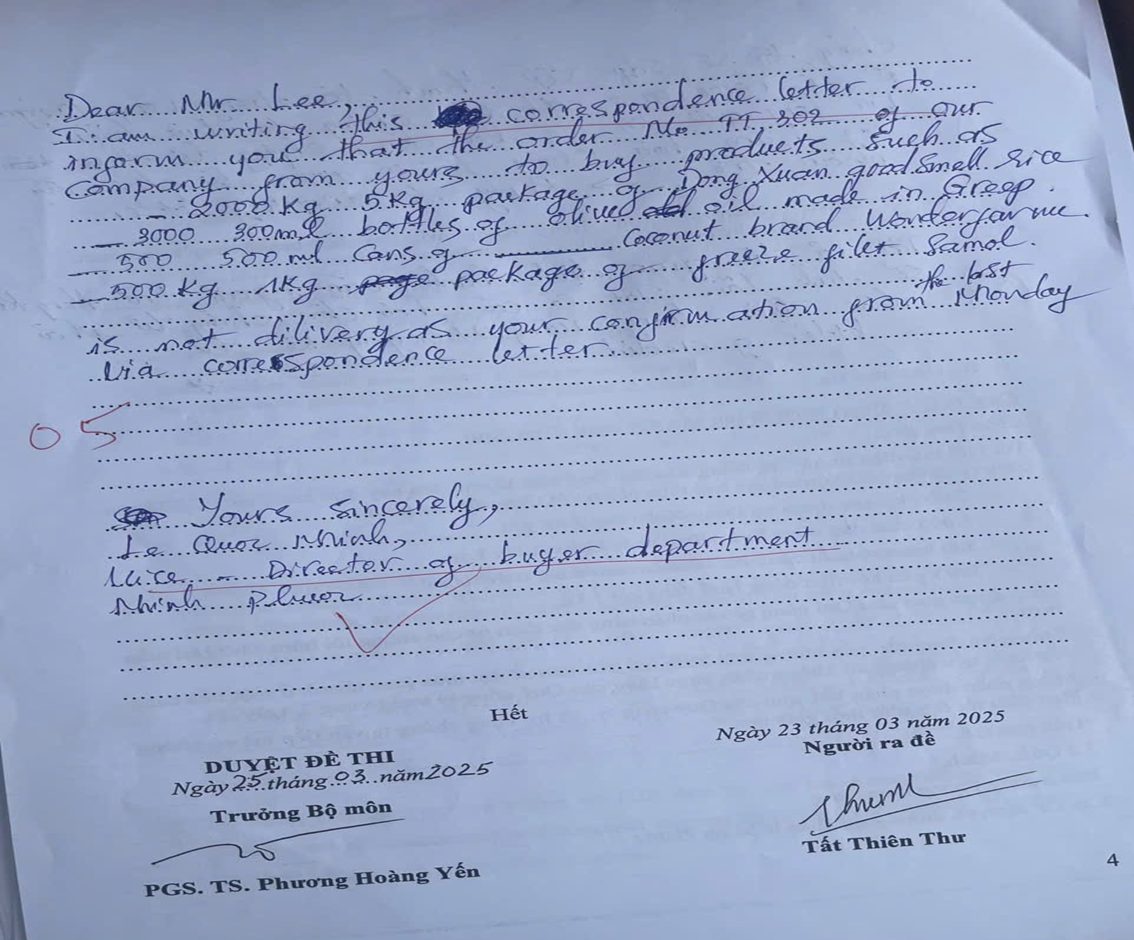 Dear Mr Lee,
I am writing this correspondence letter to
ingorm you that the order No TT 302 of our
Company from yours to buy products such as
- 2000 Kg 5Kg package of Dong Xuan good smell rice
- 3000 300ml bottles of olive oil made in Greep.
- 500 500 ml Cans of Coconut brand Wonderfarme.
- 500 Kg 1Kg package of freeze filet Samol.
is not dilivery as your confirmation from the last Monday
via correspondence letter.
05
Yours sincerely,
Le Quoc Nhinh,
- Director of buyer department
Nhinh
Hết
Ngày 23 tháng 03 năm 2025
Người ra đề
DUYỆT ĐỀ THI
Ngày 25 tháng 03 năm 2025
Trưởng Bộ môn
Tất Thiên Thư
PGS. TS. Phương Hoàng Yến
4